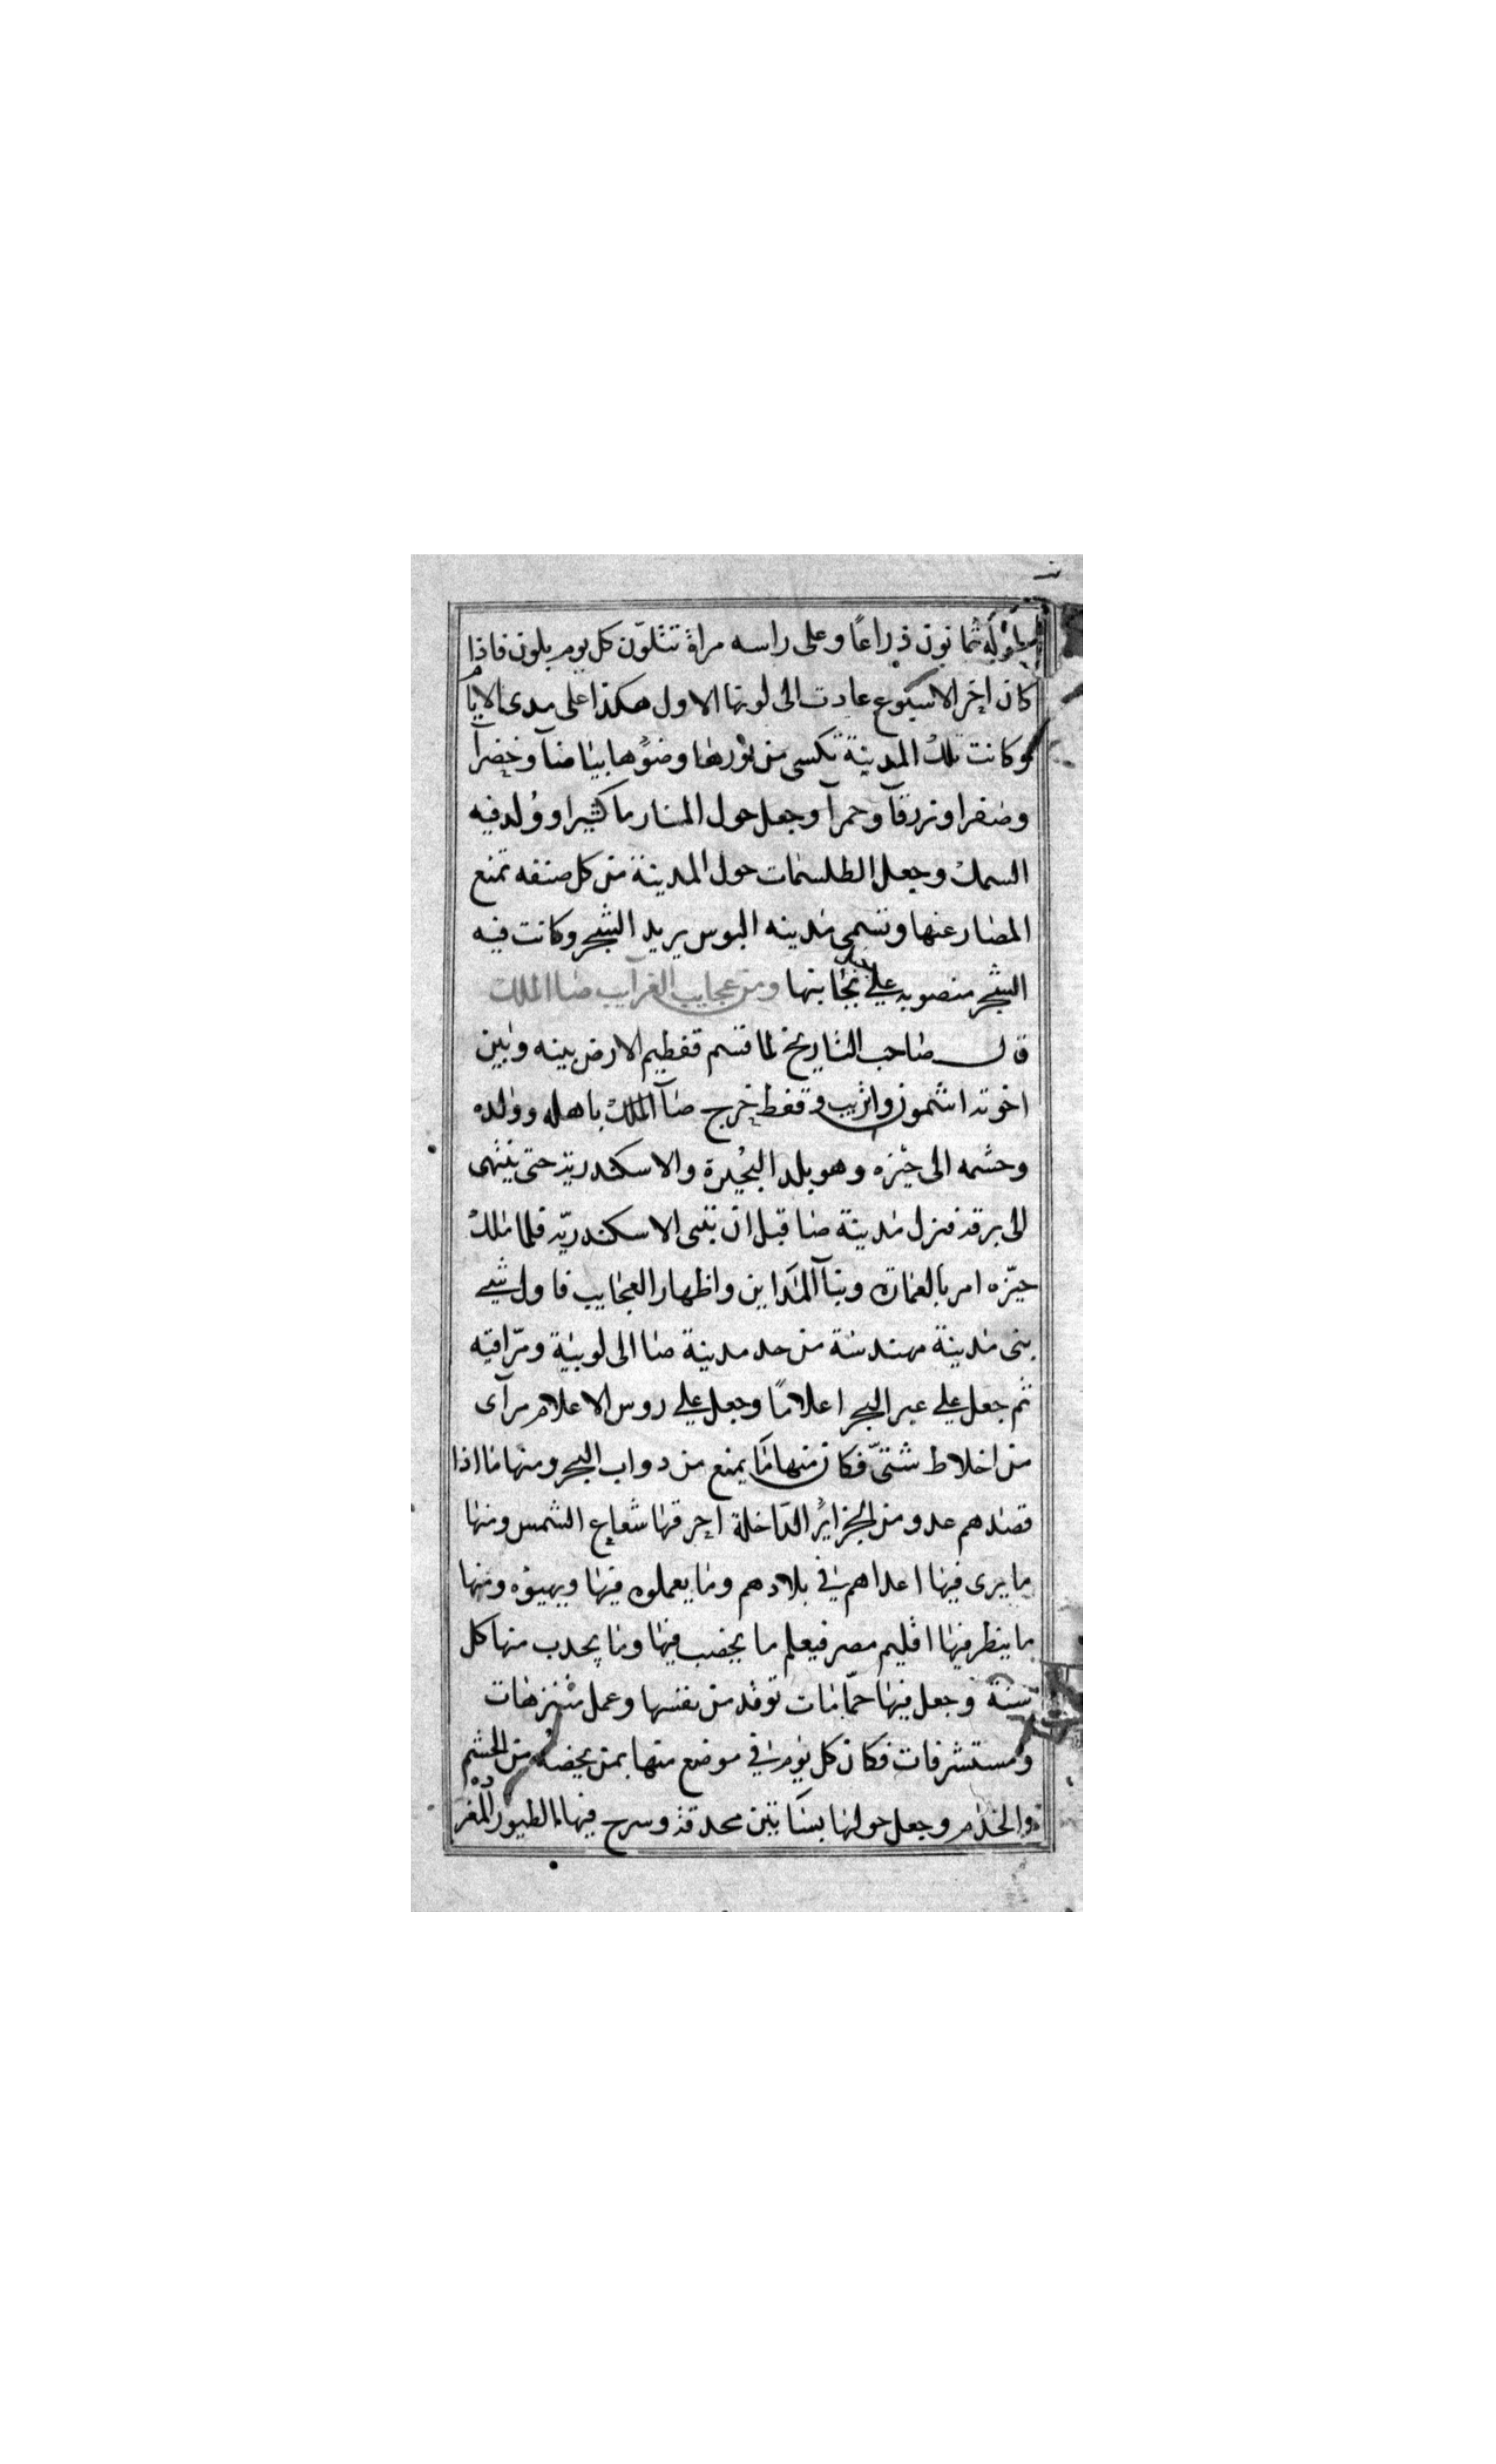 طوله ثمانون ذراعًا وعلى راسه مراة تتلوّن كل يوم بلون فاذا
كان اخر الاسبوع عادت الى لونها الاول هكذا على مدى الايام
وكانت تلك المدينة تكسى من نورها وضوءها بياضآ وخضرآ
وصفرا وزرقآ وحمرآ وجعل حول المنار ما كثيرا وولد فيه
السمك وجعل الطلسمات حول المدينة من كل صنفه تمنع
المضار عنها وتسمى مدينه البوس يريد الشجر وكانت فيه
الشجر منصوبه على ومن عجايب الغرآيب صا الملك
قال صاحب التاريخ لما قسم قفطيم الارض بينه وبين
اخوته اشمون واتريب وقفط خرج صآ الملك باهله وولده
وحشمه الى حيّزه وهو بلد البحيرة والاسكندرية حتى ينتهى
الى برقة فنزل مدينة صا قبل ان تبنى الاسكندريّه فلما ملك
حيّزه امر بالعمارة وبنآ المداين واظهار العجايب فاول شي
بنى مدينة مهندسة من حد مدينة صا الى لوبية ومرّاقيه
ثم جعل على عبر البحر اعلامًا وجعل على روس الاعلام مرآى
من اخلاط شتىّ فكان منها ما يمنع من دواب البحر ومنها ما اذا
قصدهم عدو من الجزاير الداخلة احرقها شعاع الشمس ومنها
ما يرى فيها اعداهم في بلادهم وما يعملون فيها ويهيوه ومنها
ما ينظر فيها اقليم مصر فيعلم ما يخصب فيها وما يجدب منها كل
سنة وجعل فيها حمّامات توقد من نفسها وعمل متنزهات
ومستشرفات فكان كل يوم في موضع منها بمن يخصه من الحشم
والخدم وجعل حولها بساتين محدقة وسرح فيها الطيور المغرده